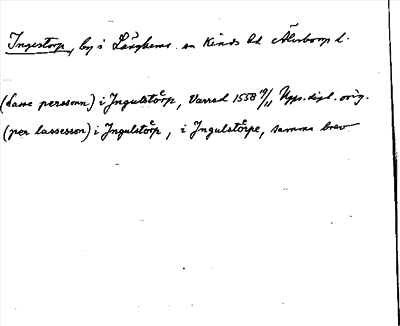 Ingestorp, by i Långhems sn Kinds hd Älvsborgs l.
(Lasse persson) i Ingulstorp, Varnad 1558 Upps. dipl. orig.
(per lassesson) i Ingulstorp, i Ingulstorpe, samma brev